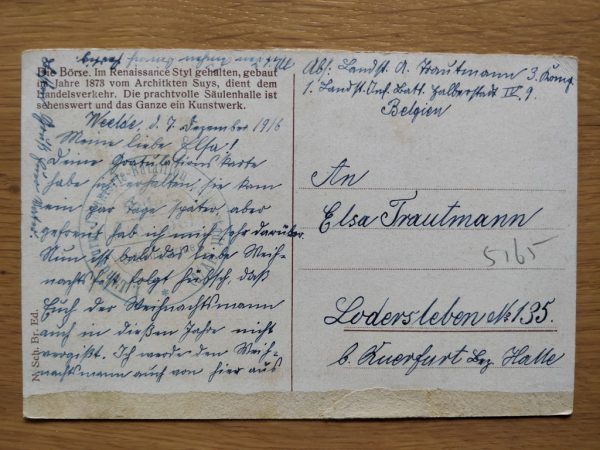 Die Börse. Im Renaissance Styl gehalten, gebaut
im Jahre 1873 vom Architkten Suys, dient dem
Handelsverkehr. Die prachtvolle Säulenhalle ist
sehenswert und das Ganze ein Kunstwerk.
Weelde, d. 7. Dezember 1916
Meine liebe Elsa!
Deine Gratulationskarte
habe ich erhalten, sie kam
ein par Tage später aber
gefreut hab ich mich sehr darüber
Nun ist bald das liebe Weih-
nachtsfest, folgt hübsch, daß
Euch der Weihnachtsmann
auch in dießen Jahre nicht
vergißt. Ich werde den Weih-
nachtsmann auch von hier aus
N. Sch. Br. Ed.
Abs: Landst. A. Trautmann 3. Komp
1. Landst. Inf. Batt. Halberstadt IV. 9.
Belgien
An
Elsa Trautmann
5165
Lodersleben № 135.
b. Querfurt Bez. Halle